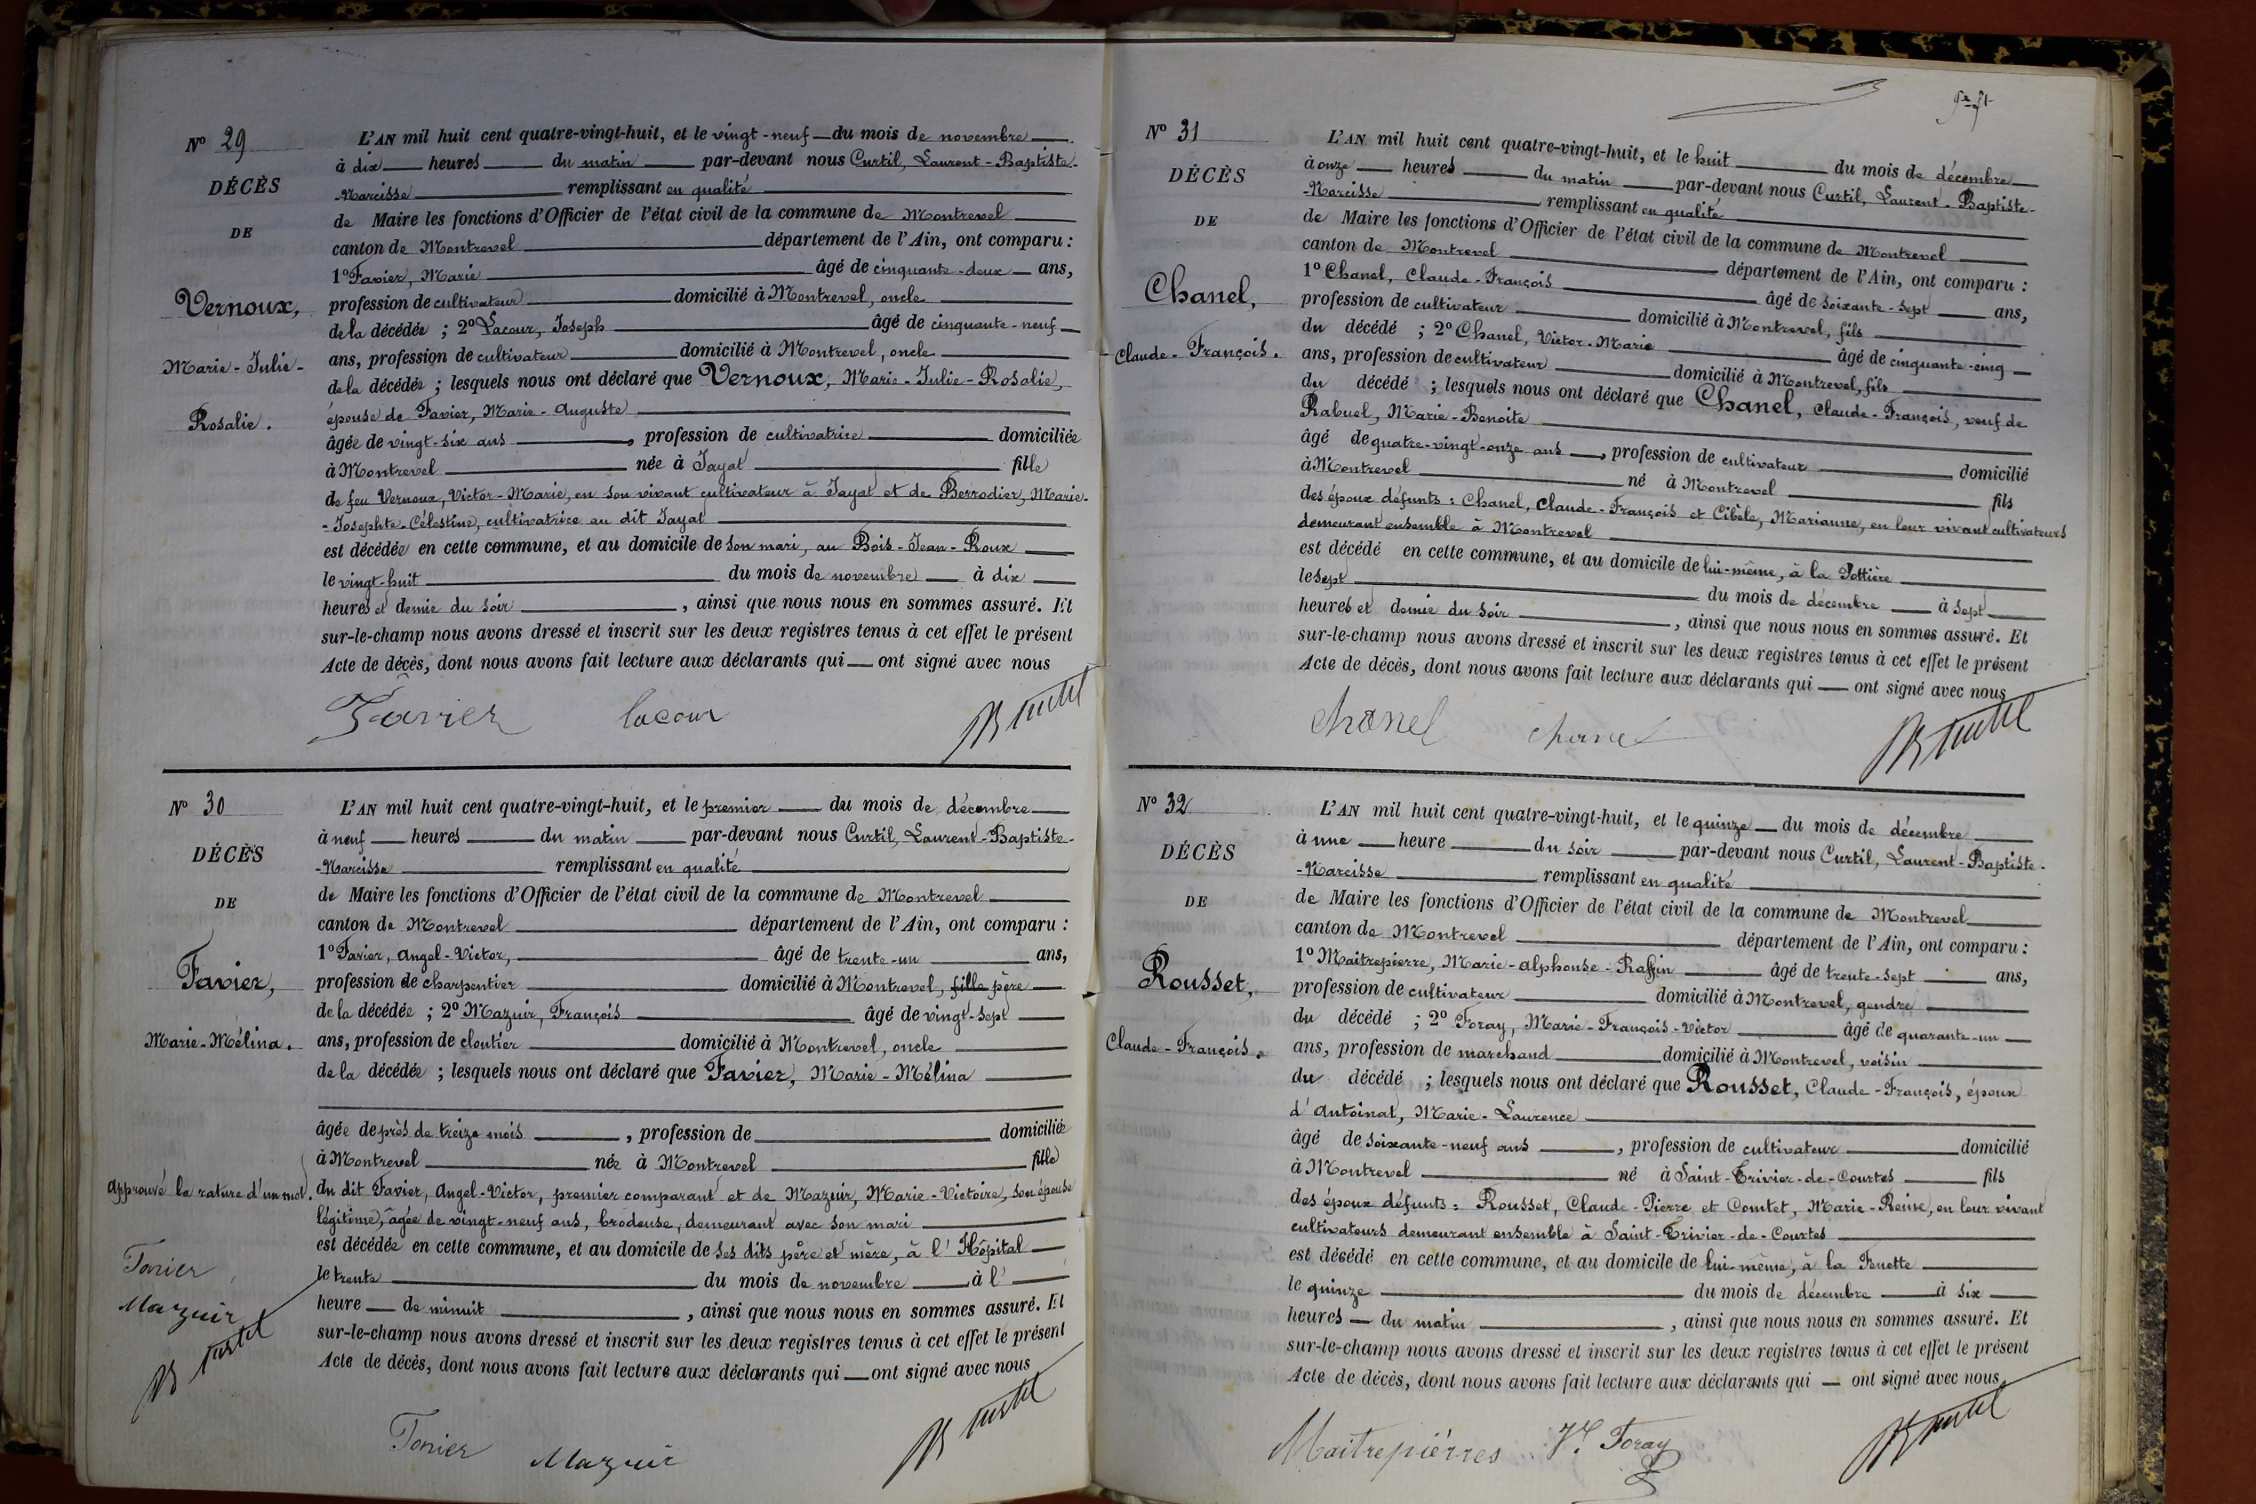 N° 29
DÉCÈS
DE
Vernoux,
Marie-Julie-
Rosalie.
L'AN mil huit cent quatre-vingt-huit, et le vingt-neuf du mois de novembre
à dix heures du matin par-devant nous Curtil, Laurent-Baptiste-
-Narcisse remplissant en qualité
de Maire les fonctions d'Officier de l'état civil de la commune de Montrevel
canton de Montrevel département de l'Ain, ont comparu :
1° Favier, Marie âgé de cinquante-deux ans,
profession de cultivateur domicilié à Montrevel, oncle
de la décédée ; 2° Lacour, Joseph âgé de cinquante-neuf
ans, profession de cultivateur domicilié à Montrevel, oncle
de la décédée ; lesquels nous ont déclaré que Vernoux, Marie-Julie-Rosalie,
épouse de Favier, Marie-Auguste
âgée de vingt-six ans, profession de cultivatrice domiciliée
à Montrevel née à Jayat fille
de feu Vernoux, Victor-Marie, en son vivant cultivateur à Jayat et de Berrodier, Marie-
-Josephte-Célestine, cultivatrice au dit Jayat
est décédée en cette commune, et au domicile de son mari, au Bois-Jean-Roux
le vingt-huit du mois de novembre à dix
heures et demie du soir, ainsi que nous nous en sommes assuré. Et
sur-le-champ nous avons dressé et inscrit sur les deux registres tenus à cet effet le présent
Acte de décès, dont nous avons fait lecture aux déclarants qui ont signé avec nous
Favier lacour B Curtil
N° 30
DÉCÈS
DE
Favier,
Marie-Mélina.
Approuvé la rature d'un mot.
Favier
Mazuir
B Curtil
L'AN mil huit cent quatre-vingt-huit, et le premier du mois de décembre
à neuf heures du matin par-devant nous Curtil, Laurent-Baptiste-
-Narcisse remplissant en qualité
de Maire les fonctions d'Officier de l'état civil de la commune de Montrevel
canton de Montrevel département de l'Ain, ont comparu :
1° Favier, Angel-Victor, âgé de trente-un ans,
profession de charpentier domicilié à Montrevel, fille père
de la décédée ; 2° Mazuir, François âgé de vingt-sept
ans, profession de cloutier domicilié à Montrevel, oncle
de la décédée ; lesquels nous ont déclaré que Favier, Marie-Mélina
âgée de près de treize mois, profession de domiciliée
à Montrevel née à Montrevel fille
du dit Favier, Angel-Victor, premier comparant et de Mazuir, Marie-Victoire, son épouse
légitime, âgée de vingt-neuf ans, brodeuse, demeurant avec son mari
est décédée en cette commune, et au domicile de ses dits père et mère, à l'Hôpital
le trente du mois de novembre à l'
heure de minuit, ainsi que nous nous en sommes assuré. Et
sur-le-champ nous avons dressé et inscrit sur les deux registres tenus à cet effet le présent
Acte de décès, dont nous avons fait lecture aux déclarants qui ont signé avec nous
Favier Mazuir B Curtil
N° 31
DÉCÈS
DE
Chanel,
Claude-François.
L'AN mil huit cent quatre-vingt-huit, et le huit du mois de décembre
à onze heures du matin par-devant nous Curtil, Laurent-Baptiste-
-Narcisse remplissant en qualité
de Maire les fonctions d'Officier de l'état civil de la commune de Montrevel
canton de Montrevel département de l'Ain, ont comparu :
1° Chanel, Claude-François âgé de soixante-sept ans,
profession de cultivateur domicilié à Montrevel, fils
du décédé ; 2° Chanel, Victor-Marie âgé de cinquante-cinq
ans, profession de cultivateur domicilié à Montrevel, fils
du décédé ; lesquels nous ont déclaré que Chanel, Claude-François, veuf de
Rabuel, Marie-Benoite
âgé de quatre-vingt-onze ans, profession de cultivateur domicilié
à Montrevel né à Montrevel fils
des époux défunts : Chanel, Claude-François et Cibèle, Marianne, en leur vivant cultivateurs
demeurant ensemble à Montrevel
est décédé en cette commune, et au domicile de lui-même, à la Pottière
le sept du mois de décembre à sept
heures et demie du soir, ainsi que nous nous en sommes assuré. Et
sur-le-champ nous avons dressé et inscrit sur les deux registres tenus à cet effet le présent
Acte de décès, dont nous avons fait lecture aux déclarants qui ont signé avec nous
Chanel chanel B Curtil
N° 32
DÉCÈS
DE
Rousset,
Claude-François.
L'AN mil huit cent quatre-vingt-huit, et le quinze du mois de décembre
à une heure du soir par-devant nous Curtil, Laurent-Baptiste-
-Narcisse remplissant en qualité
de Maire les fonctions d'Officier de l'état civil de la commune de Montrevel
canton de Montrevel département de l'Ain, ont comparu :
1° Maitrepierre, Marie-Alphonse-Raffin âgé de trente-sept ans,
profession de cultivateur domicilié à Montrevel, gendre
du décédé ; 2° Foray, Marie-François-Victor âgé de quarante-un
ans, profession de marchand domicilié à Montrevel, voisin
du décédé ; lesquels nous ont déclaré que Rousset, Claude-François, époux
d'Antoinat, Marie-Laurence
âgé de soixante-neuf ans, profession de cultivateur domicilié
à Montrevel né à Saint-Trivier-de-Courtes fils
des époux défunts : Rousset, Claude-Pierre et Comtet, Marie-Reine, en leur vivant
cultivateurs demeurant ensemble à Saint-Trivier-de-Courtes
est décédé en cette commune, et au domicile de lui-même, à la Fenette
le quinze du mois de décembre à six
heures du matin, ainsi que nous nous en sommes assuré. Et
sur-le-champ nous avons dressé et inscrit sur les deux registres tenus à cet effet le présent
Acte de décès, dont nous avons fait lecture aux déclarants qui ont signé avec nous
Maitrepierres Vr Foray B Curtil